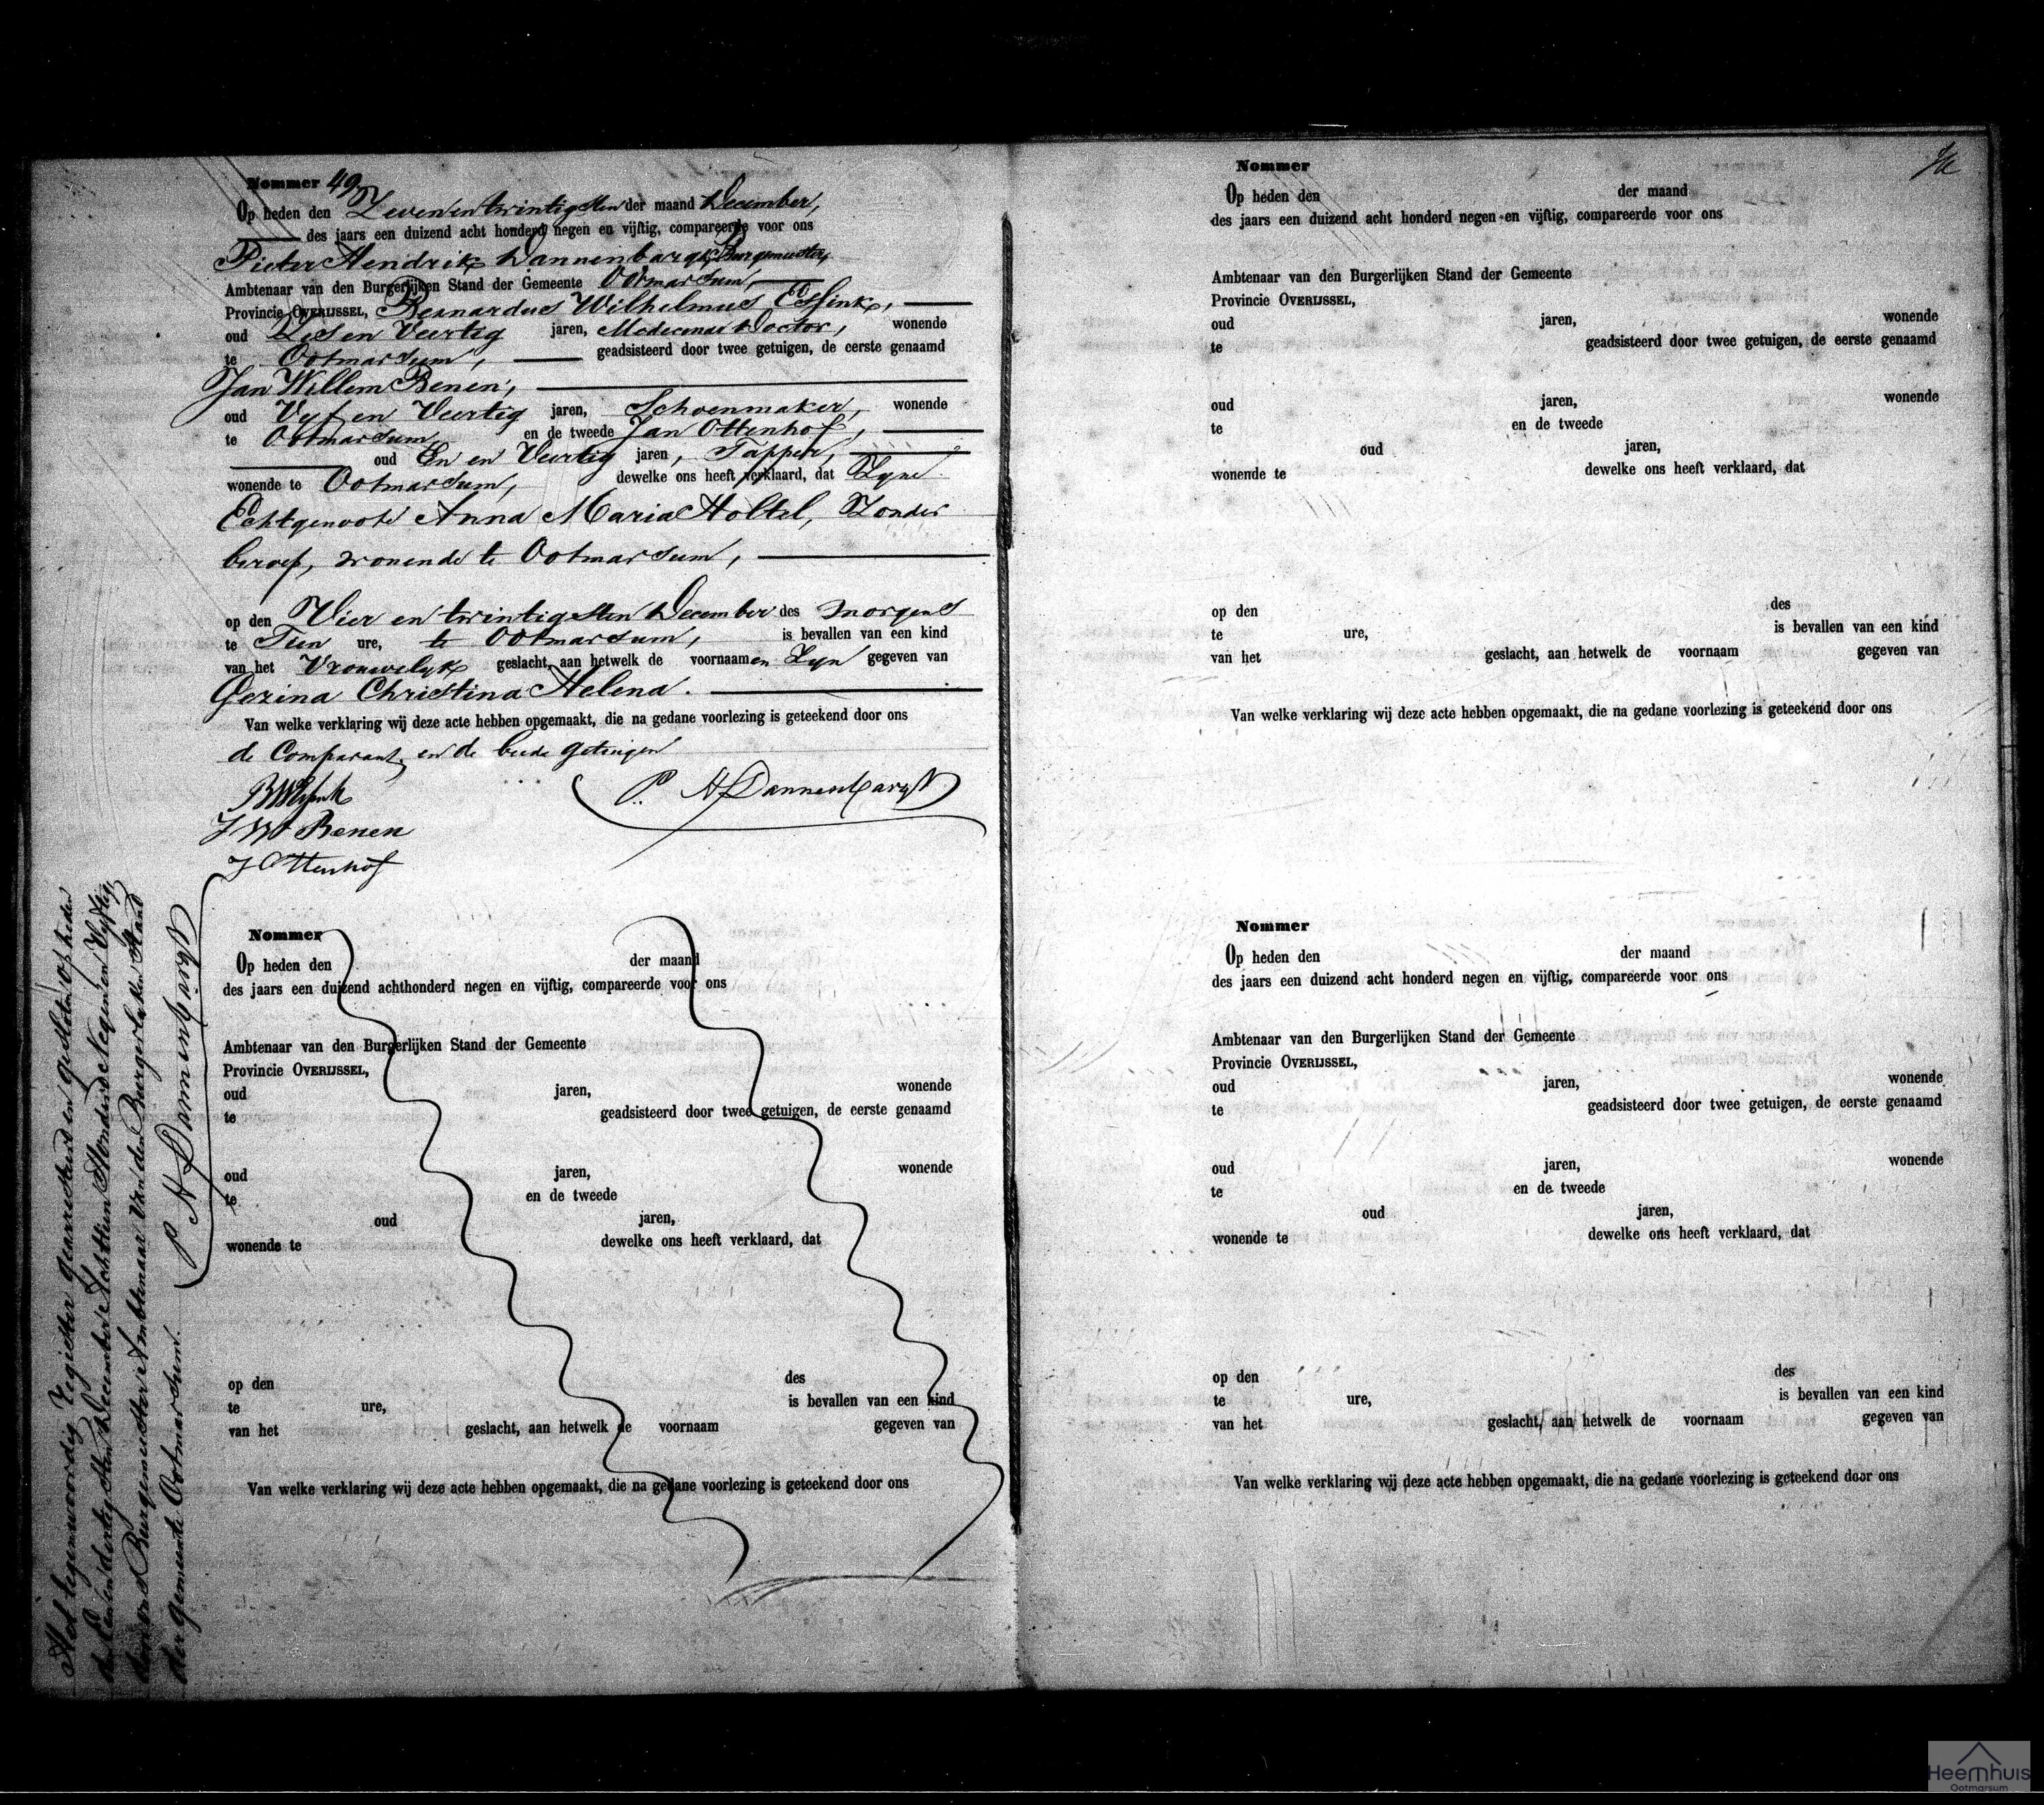 Nommer 49.
Op heden den Zevenentwintigsten der maand December,
des jaars een duizend acht honderd negen en vijftig, compareerde voor ons
Pieter Hendrik Dannenbargh, Burgemeester,
Ambtenaar van den Burgerlijken Stand der Gemeente Ootmarsum,
Provincie OVERIJSSEL, Bernardus Wilhelmus Essink,
oud Zes en Veertig jaren, Medecinae Doctor, wonende
te Ootmarsum, geadsisteerd door twee getuigen, de eerste genaamd
Jan Willem Benen,
oud Vyf en Veertig jaren, Schoenmaker, wonende
te Ootmarsum en de tweede Jan Ottenhof,
oud En en Veertig jaren, Tapper,
wonende te Ootmarsum, dewelke ons heeft verklaard, dat Zyne
Echtgenoote Anna Maria Holtel, Zonder
beroep, wonende te Ootmarsum,
op den Vier en twintigsten December des morgens
te Tien ure, te Ootmarsum, is bevallen van een kind
van het Vrouwelyk geslacht, aan hetwelk de voornaamen Zyn gegeven van
Gezina Christina Helena.
Van welke verklaring wij deze acte hebben opgemaakt, die na gedane voorlezing is geteekend door ons
de Comparant en de beide getuigen
BWEssink
P. H Dannenbargh
J W Benen
J Ottenhof
Het tegenwoordig Register gearresteerd en gesloten op heden
den Eenendertigsten December Achttien Honderd Negen en Vyftig
door ons Burgemeester Ambtenaar van den Burgerlyken Stand
der gemeente Ootmarsum.
P H Dannenbargh
Nommer
Op heden den der maand
des jaars een duizend achthonderd negen en vijftig, compareerde voor ons
Ambtenaar van den Burgerlijken Stand der Gemeente
Provincie OVERIJSSEL,
oud jaren, wonende
te geadsisteerd door twee getuigen, de eerste genaamd
oud jaren, wonende
te en de tweede
oud jaren,
wonende te dewelke ons heeft verklaard, dat
op den des
te ure, is bevallen van een kind
van het geslacht, aan hetwelk de voornaam gegeven van
Van welke verklaring wij deze acte hebben opgemaakt, die na gedane voorlezing is geteekend door ons
Nommer
Op heden den der maand
des jaars een duizend acht honderd negen en vijftig, compareerde voor ons
Ambtenaar van den Burgerlijken Stand der Gemeente
Provincie OVERIJSSEL,
oud jaren, wonende
te geadsisteerd door twee getuigen, de eerste genaamd
oud jaren, wonende
te en de tweede
oud jaren,
wonende te dewelke ons heeft verklaard, dat
op den des
te ure, is bevallen van een kind
van het geslacht, aan hetwelk de voornaam gegeven van
Van welke verklaring wij deze acte hebben opgemaakt, die na gedane voorlezing is geteekend door ons
Nommer
Op heden den der maand
des jaars een duizend acht honderd negen en vijftig, compareerde voor ons
Ambtenaar van den Burgerlijken Stand der Gemeente
Provincie OVERIJSSEL,
oud jaren, wonende
te geadsisteerd door twee getuigen, de eerste genaamd
oud jaren, wonende
te en de tweede
oud jaren,
wonende te dewelke ons heeft verklaard, dat
op den des
te ure, is bevallen van een kind
van het geslacht, aan hetwelk de voornaam gegeven van
Van welke verklaring wij deze acte hebben opgemaakt, die na gedane voorlezing is geteekend door ons
Heemhuis
Ootmarsum